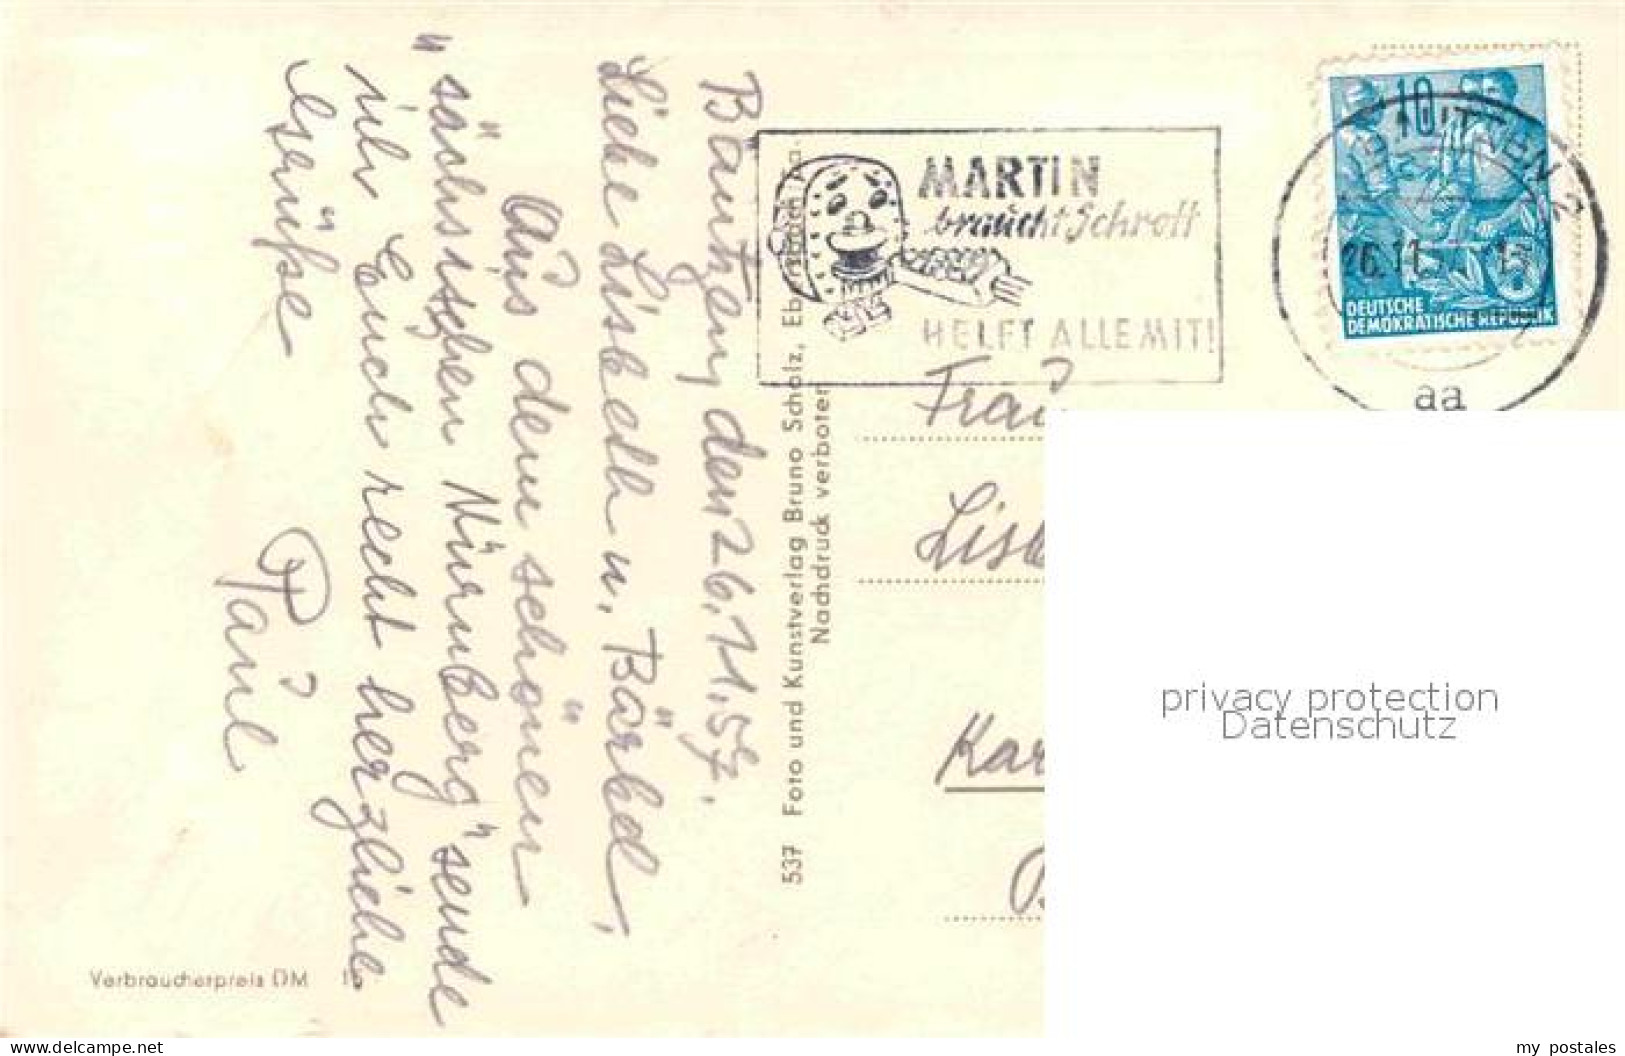 Bautzen, den 26.11.57.
Liebe Lisbeth u. Bärbel,
Aus dem schönen
"sächsischen Nürnberg" sende
ich Euch recht herzliche
Grüße
Paul
Verbraucherpreis DM
537 Foto und Kunstverlag Bruno Scholz,
Nachdruck verboten
MARTIN
braucht Schrott
HELFT ALLE MIT!
10
BAUTZEN 2
26.11.
aa
DEUTSCHE
DEMOKRATISCHE REPUBLIK
Frau
privacy protection
Datenschutz
www.delcampe.net
my_postales